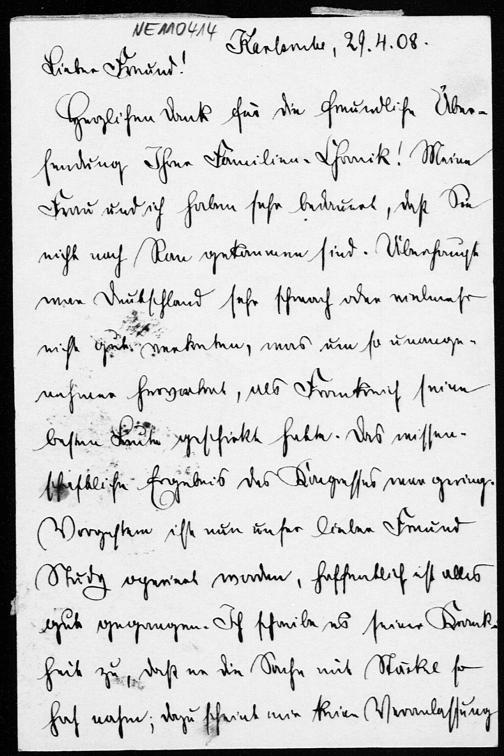 NE110414
Karlsruhe, 29.4.08.
Lieber Freund!
Herzlichen Dank für die freundliche Über-
sendung Ihrer Familien-Chronik! Meine
Frau und ich haben sehr bedauert, daß Sie
nicht nach Rom gekommen sind. Überhaupt
war Deutschland sehr schwach oder vielmehr
nicht gut vertreten, was um so unange-
nehmer hervortrat, als Frankreich seine
besten Leute geschickt hatte. Das wissen-
schaftliche Ergebnis des Kongresses war gering.
Vorgestern ist nun unser lieber Freund
Study operiert worden, hoffentlich ist alles
gut gegangen. Ich schreibe es seiner Krank-
heit zu, daß er die Sache mit Stäckel so
hoch nahm; dazu scheint mir keine Veranlassung